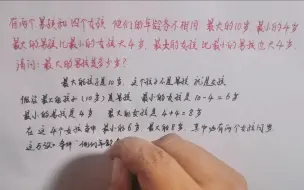 有两个男孩和四个女孩 他们的年龄各不相同 最大的10岁 最小的4岁
最大的男孩比最小的女孩大4岁，最大的女孩比最小的男孩也大4岁。
请问：最大的男孩是多少岁？
最大的孩子是10岁，这个孩子不是男孩 就是女孩
假设 最大的孩子（10岁）是男孩 最小的女孩 10-4=6岁
最小的男孩是4岁 最大的女孩是4+4=8岁
在这4个女孩中 最小的6岁 最大的8岁，其中必有两个女孩同岁